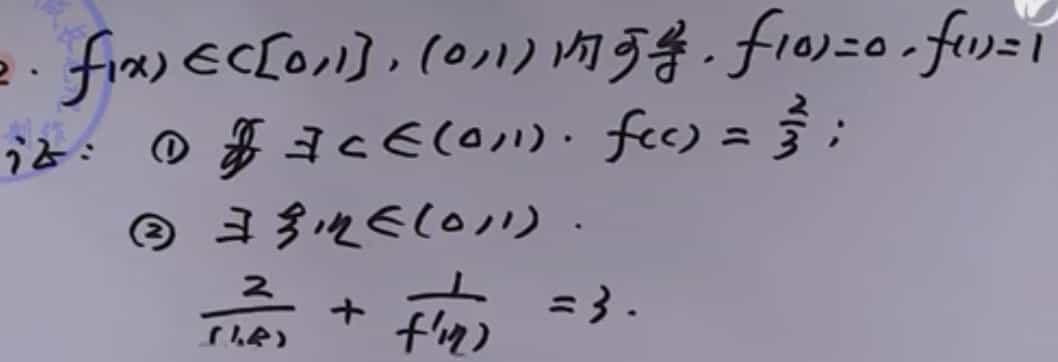 2. f(x)∈C[0,1], (0,1)内可导. f(0)=0, f(1)=1
证: ① ∃c∈(0,1). f(c)=2/3;
② ∃ξ,η∈(0,1).
2/f'(ξ) + 1/f'(η) = 3.